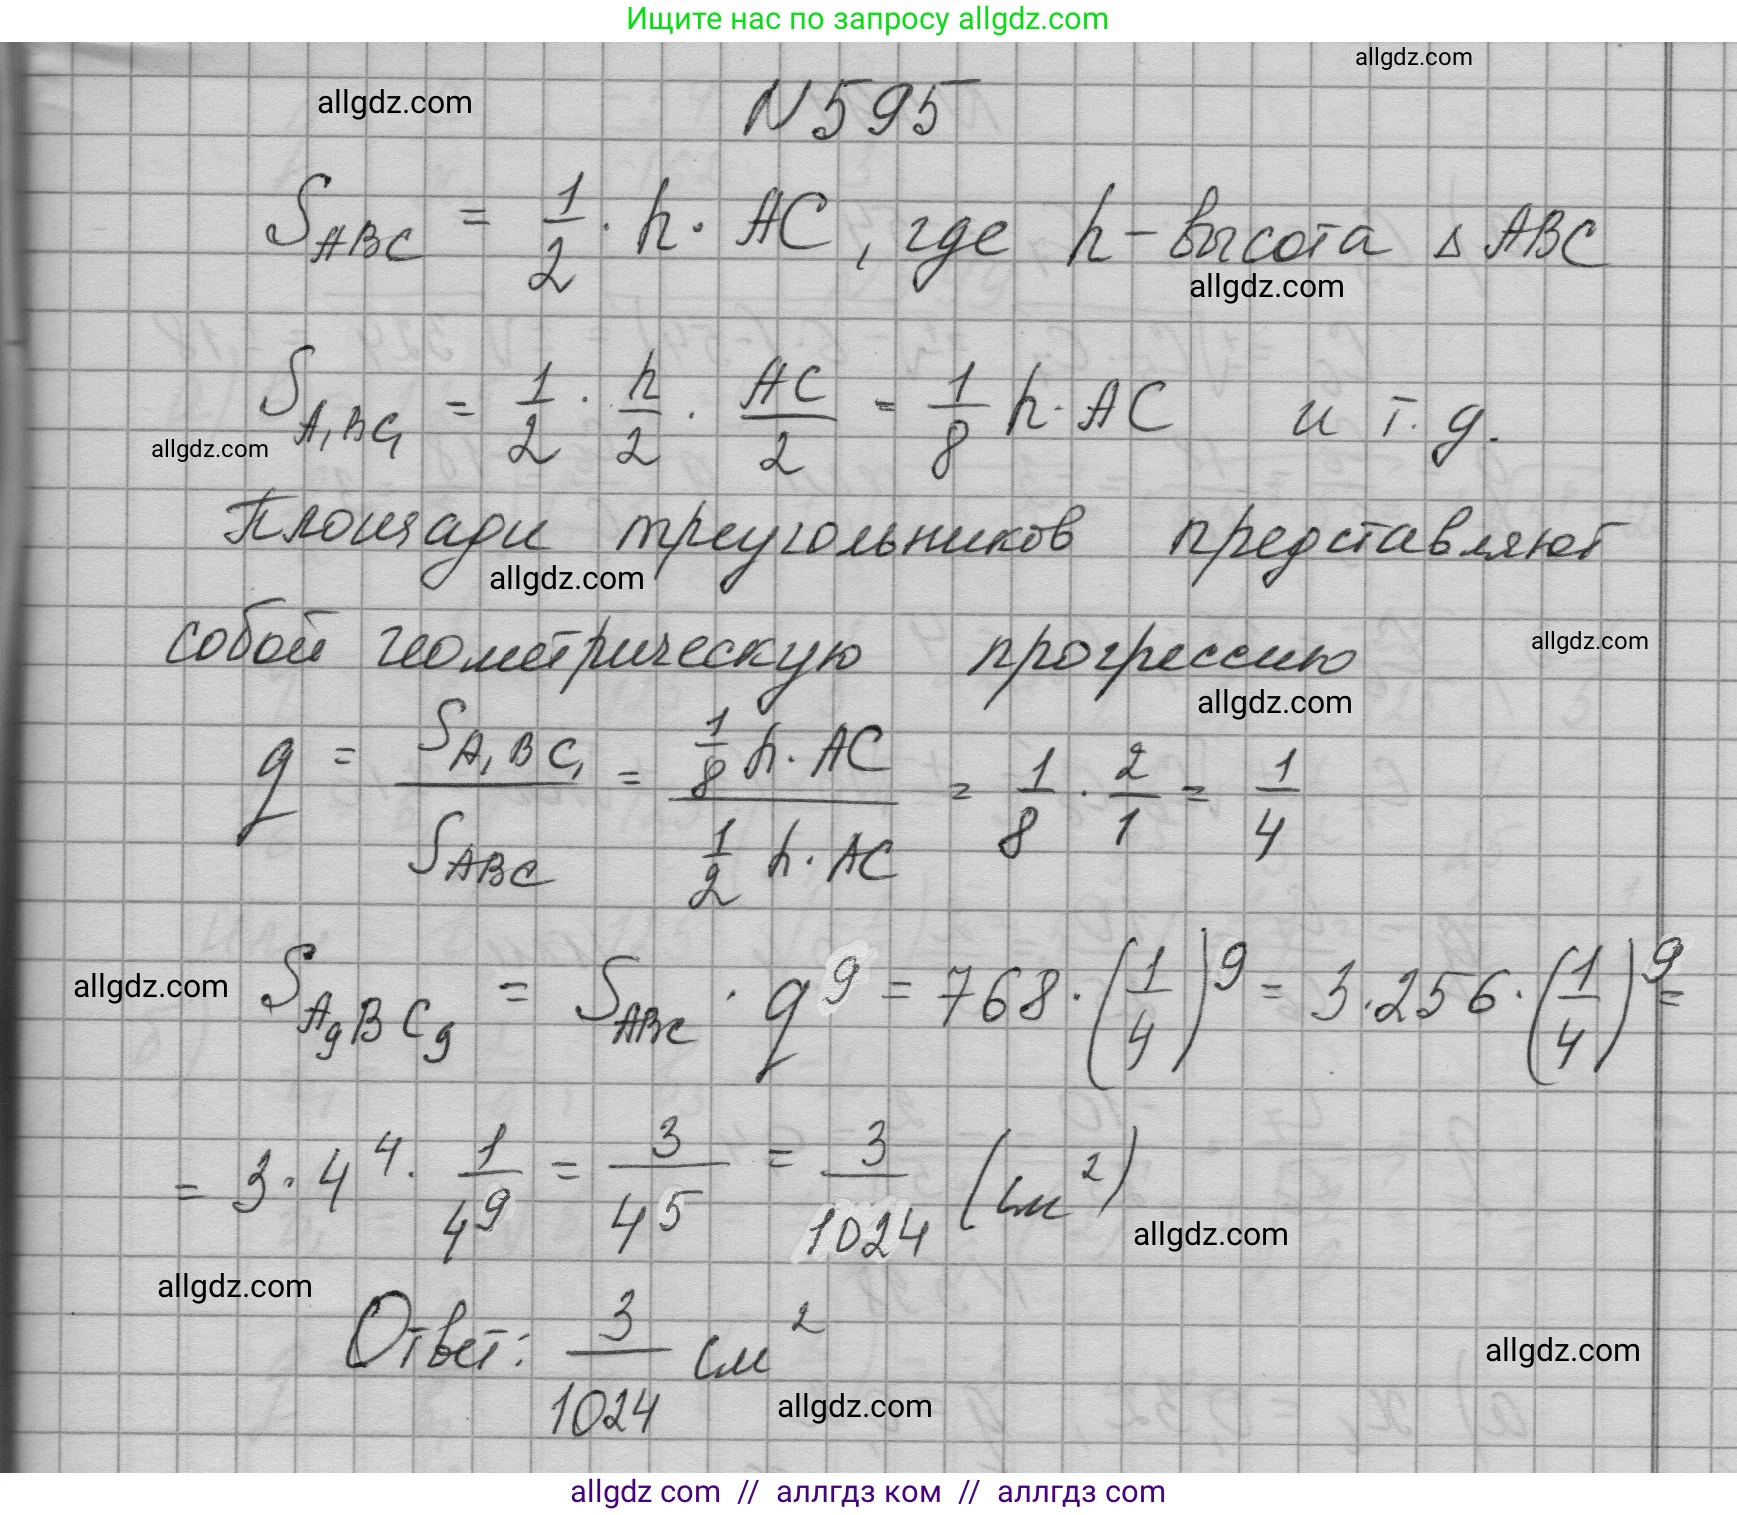 Ищите нас по запросу allgdz.com
allgdz.com
allgdz.com
N 595
S_ABC = 1/2 · h · AC, где h - высота △ ABC
allgdz.com
S_A₁BC₁ = 1/2 · h/2 · AC/2 = 1/8 h · AC и т. д.
allgdz.com
Площади треугольников представляют
allgdz.com
собой геометрическую прогрессию
allgdz.com
allgdz.com
q = S_A₁BC₁ / S_ABC = (1/8 h · AC) / (1/2 h · AC) = 1/8 · 2/1 = 1/4
allgdz.com S_A₉BC₉ = S_ABC · q⁹ = 768 · (1/4)⁹ = 3 · 256 · (1/4)⁹ =
= 3 · 4⁴ · 1/4⁹ = 3/4⁵ = 3/1024 (см²)
allgdz.com
allgdz.com
Ответ: 3/1024 см²
allgdz.com
allgdz.com
allgdz com // аллгдз ком // аллгдз com